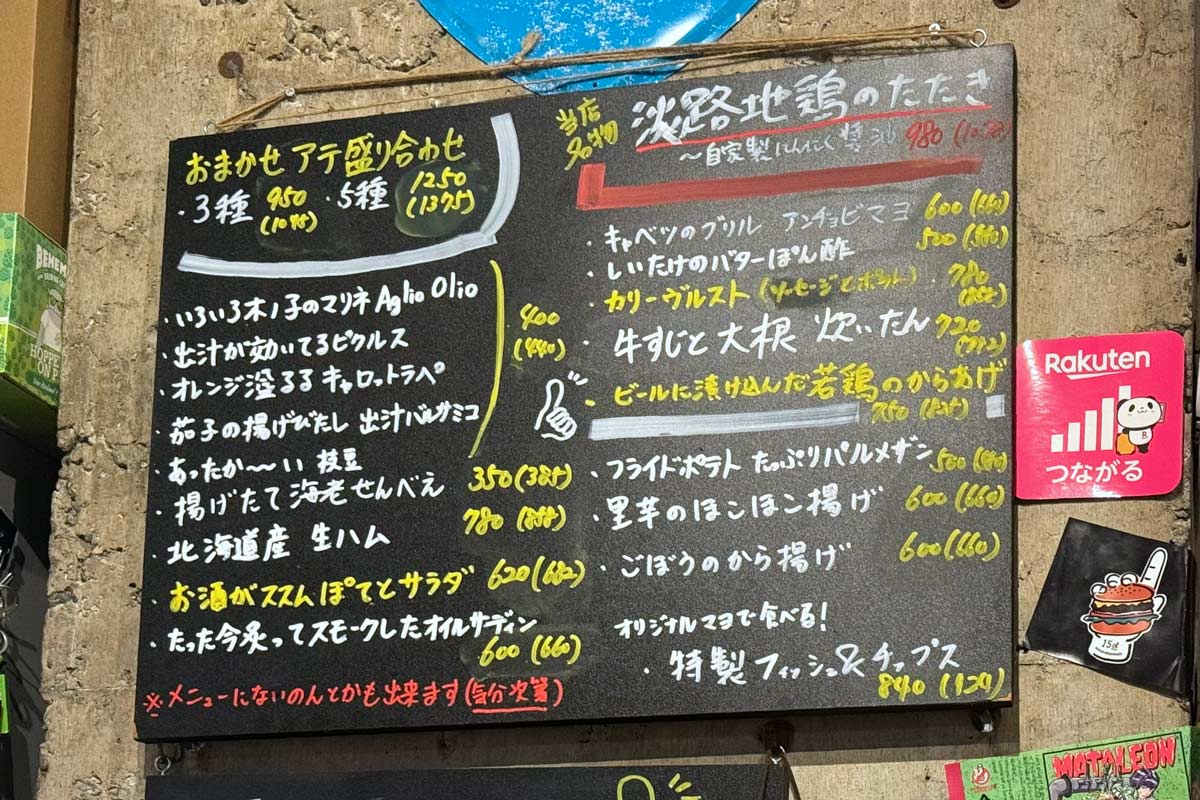 おまかせ アテ盛り合わせ
・3種 950 ・5種 1250
(1045) (1375)
・いろいろ木ノ子のマリネ Aglio Olio
・出汁が効いてるピクルス
・オレンジ溢るる キャロットラペ
・茄子の揚げびたし 出汁バルサミコ
・あったか〜い 枝豆
400
(440)
・揚げたて 海老せんべえ 350(385)
・北海道産 生ハム 780(858)
・お酒がススム ぽてとサラダ 620(682)
・たった今炙ってスモークしたオイルサーディン
600(660)
※メニューにないのんとかも出来ます(気分次第)
当店
名物
淡路地鶏のたたき
〜自家製にんにく醤油 980
・キャベツのグリル アンチョビマヨ 600(660)
・しいたけのバターぽん酢 500(550)
・カリーヴルスト(ソーセージとポテト) 780
(858)
・牛すじと大根 炊いたん 720
(792)
・ビールに漬け込んだ若鶏のからあげ
750(825)
・フライドポテト たっぷりパルメザン 500
・里芋のほこほこ揚げ 600(660)
・ごぼうのから揚げ 600(660)
オリジナルマヨで食べる!
・特製フィッシュ&チップス
840
Rakuten
つながる
BEHEM
HOPPE
MATALEON